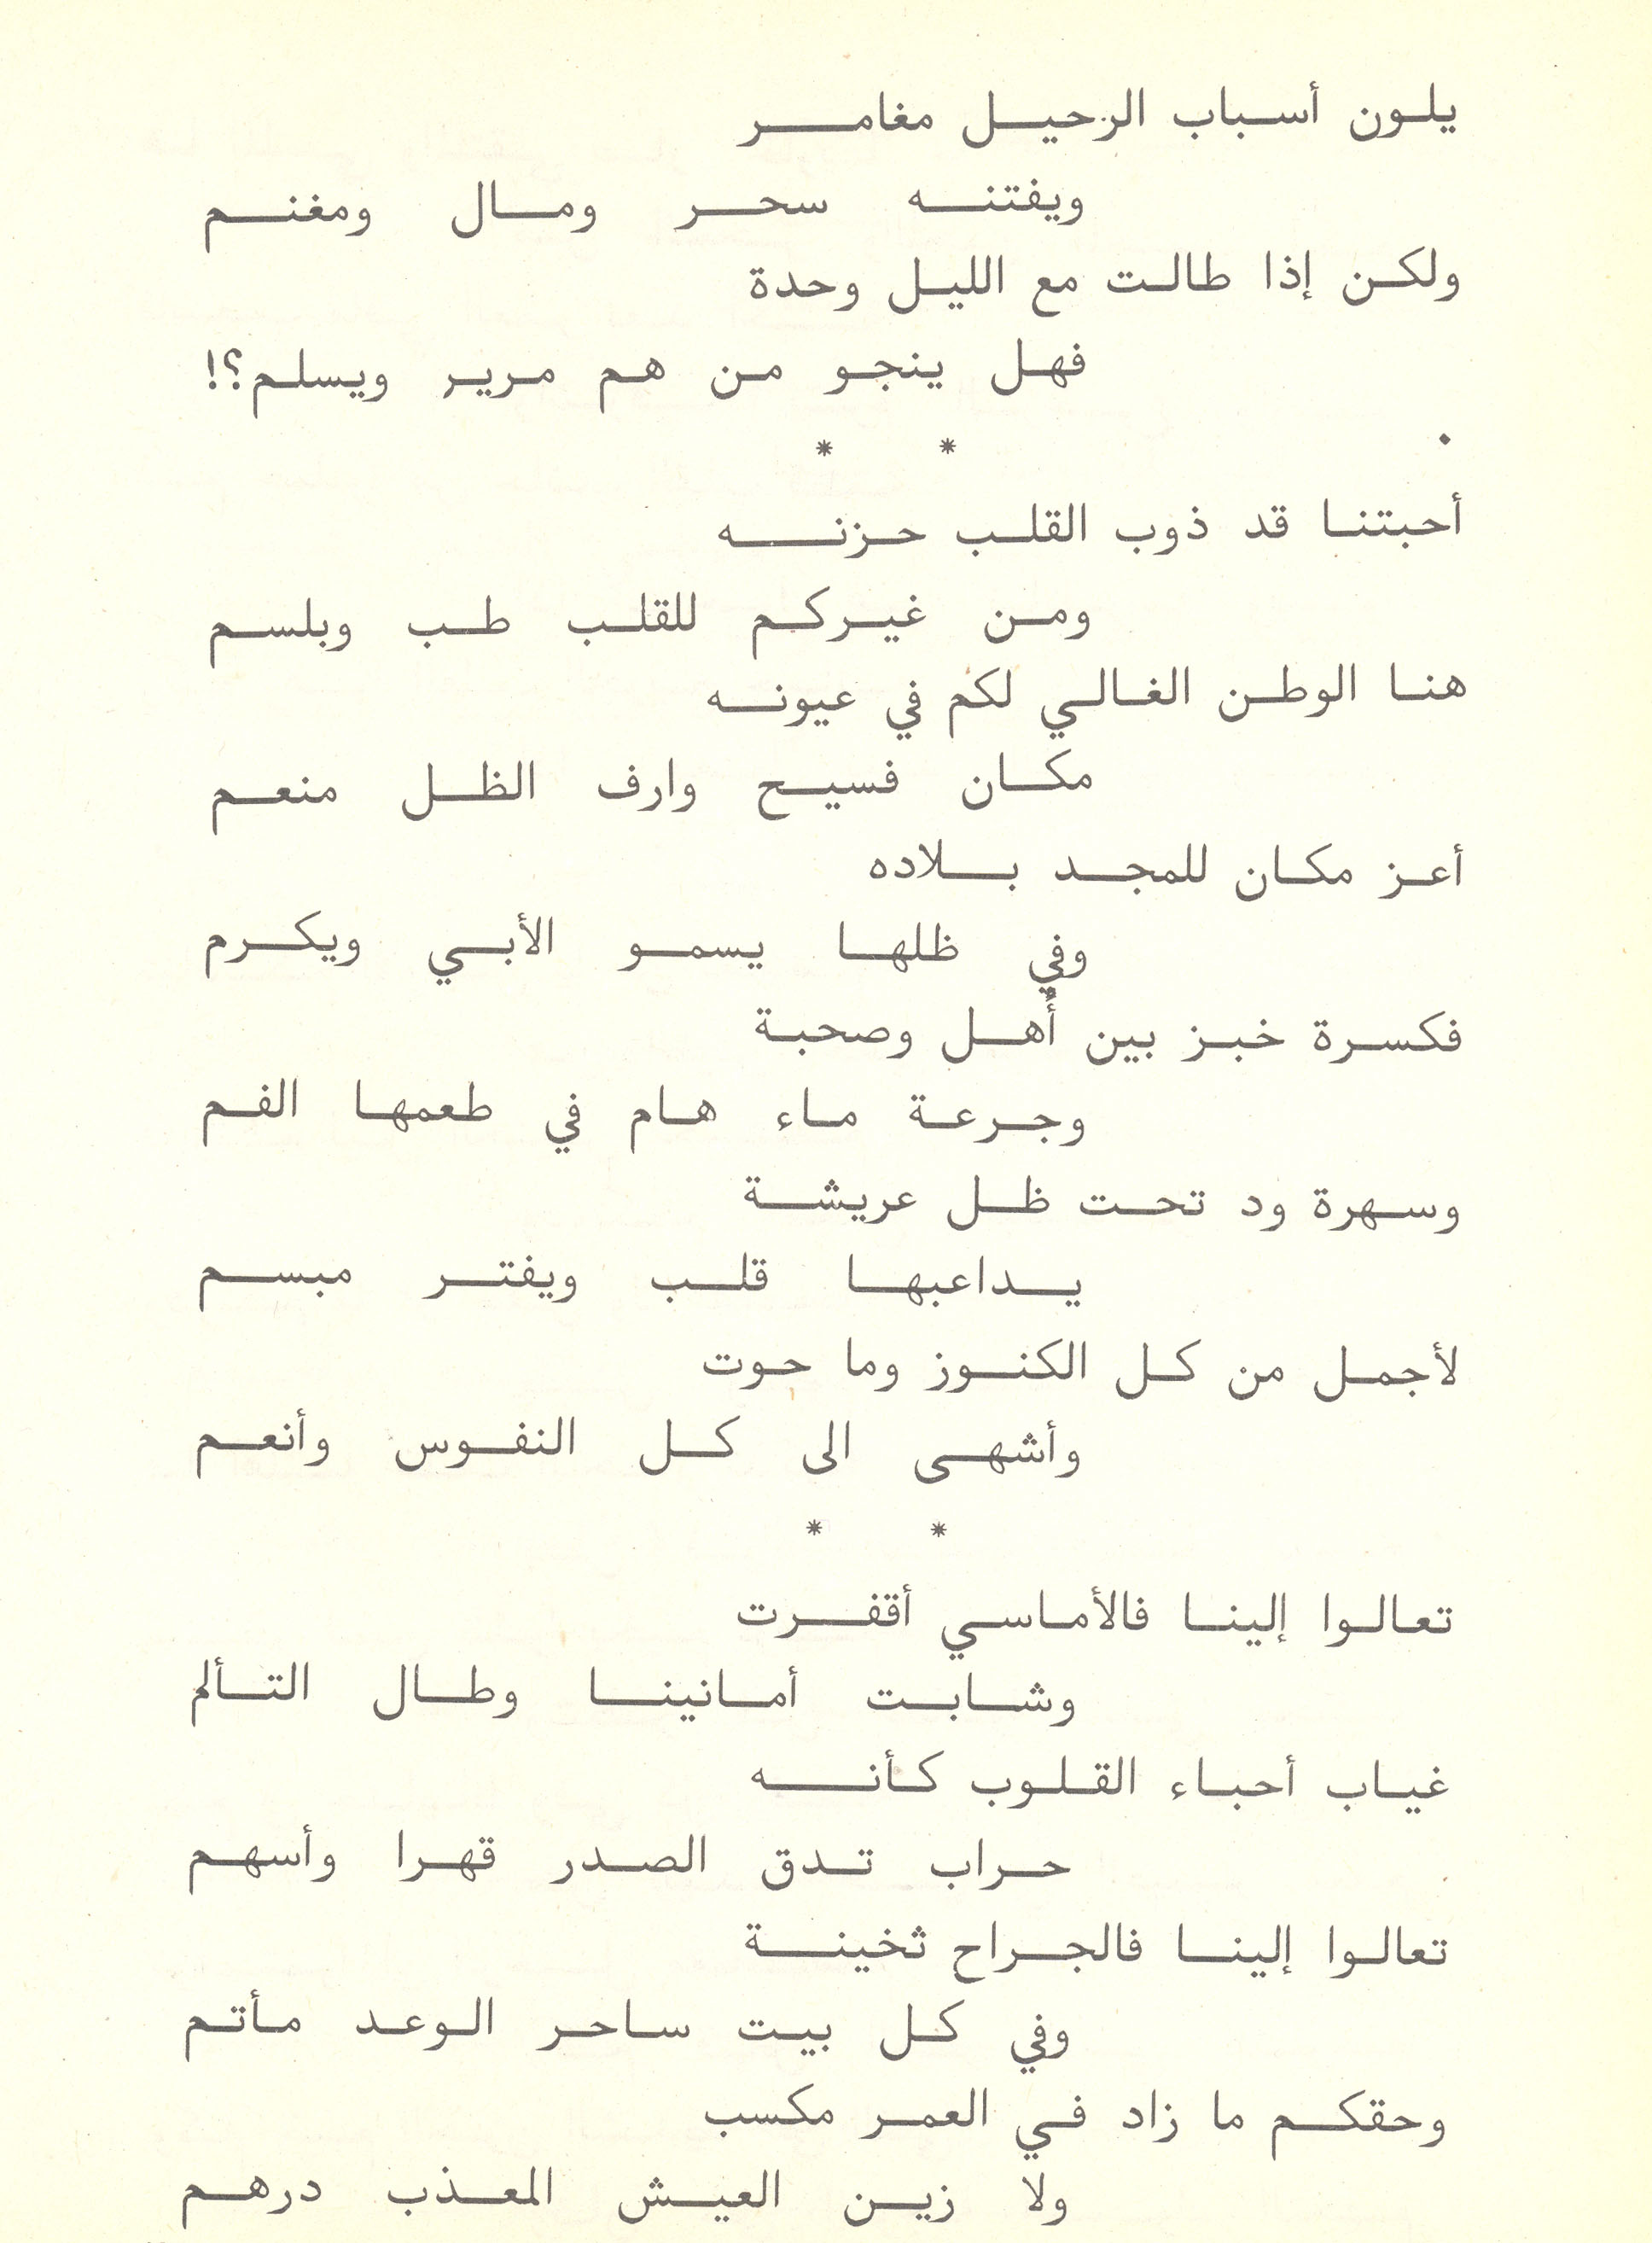 يلون أسباب الرحيل مغامر
ويفتنه سحر ومال ومغنم
ولكن إذا طالت مع الليل وحدة
فهل ينجو من هم مرير ويسلم؟!
* *
أحبتنا قد ذوب القلب حزنه
ومن غيركم للقلب طب وبلسم
هنا الوطن الغالي لكم في عيونه
مكان فسيح وارف الظل منعم
أعز مكان للمجد بلاده
وفي ظلها يسمو الأبي ويكرم
فكسرة خبز بين أهل وصحبة
وجرعة ماء هام في طعمها الفم
وسهرة ود تحت ظل عريشة
يداعبها قلب ويفتر مبسم
لأجمل من كل الكنوز وما حوت
وأشهى الى كل النفوس وأنعم
* *
تعالوا إلينا فالأماسي أقفرت
وشابت أمانينا وطال التألم
غياب أحباء القلوب كأنه
حراب تدق الصدر قهرا وأسهم
تعالوا إلينا فالجراح ثخينة
وفي كل بيت ساحر الوعد مأتم
وحقكم ما زاد في العمر مكسب
ولا زين العيش المعذب درهم